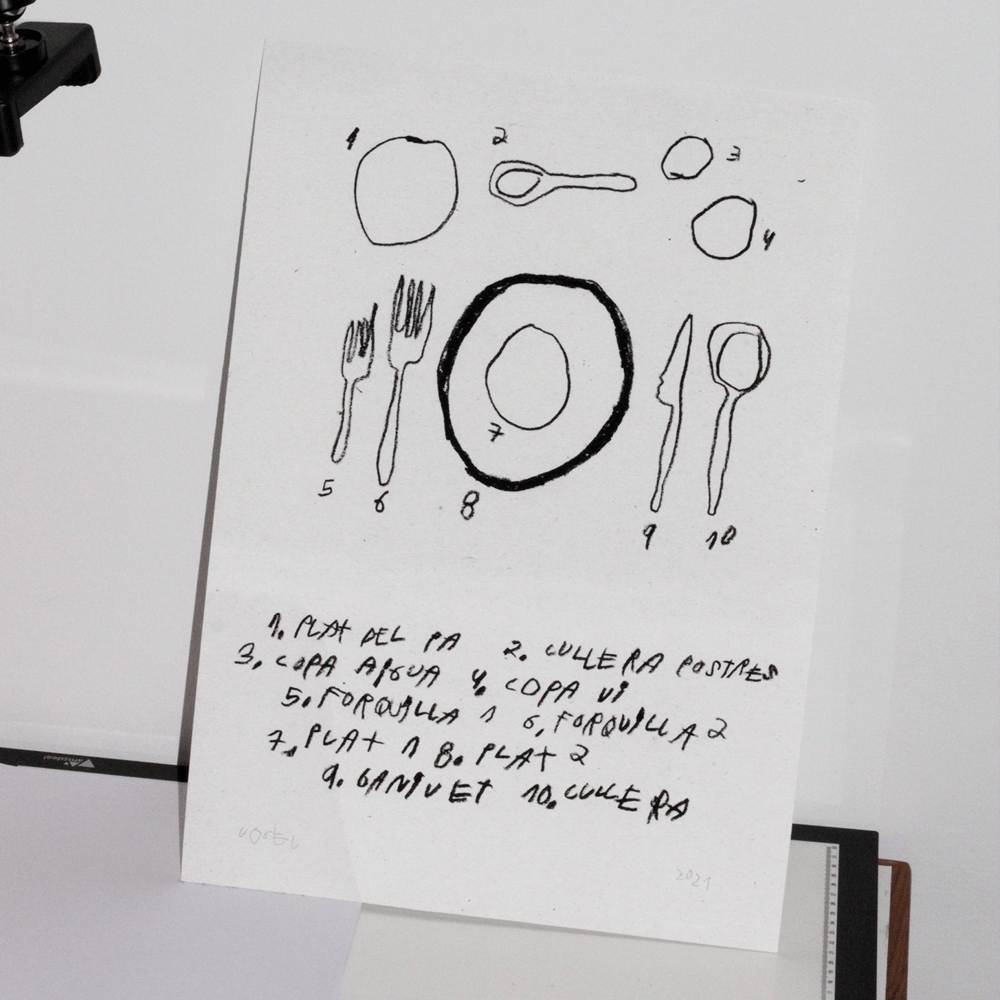 1
2
3
4
5
6
7
8
9
10
1. PLAT DEL PA 2. CULLERA POSTRES
3. COPA AIGUA 4. COPA VI
5. FORQUILLA 1 6. FORQUILLA 2
7. PLAT 1 8. PLAT 2
9. GANIVET 10. CULLERA
2021